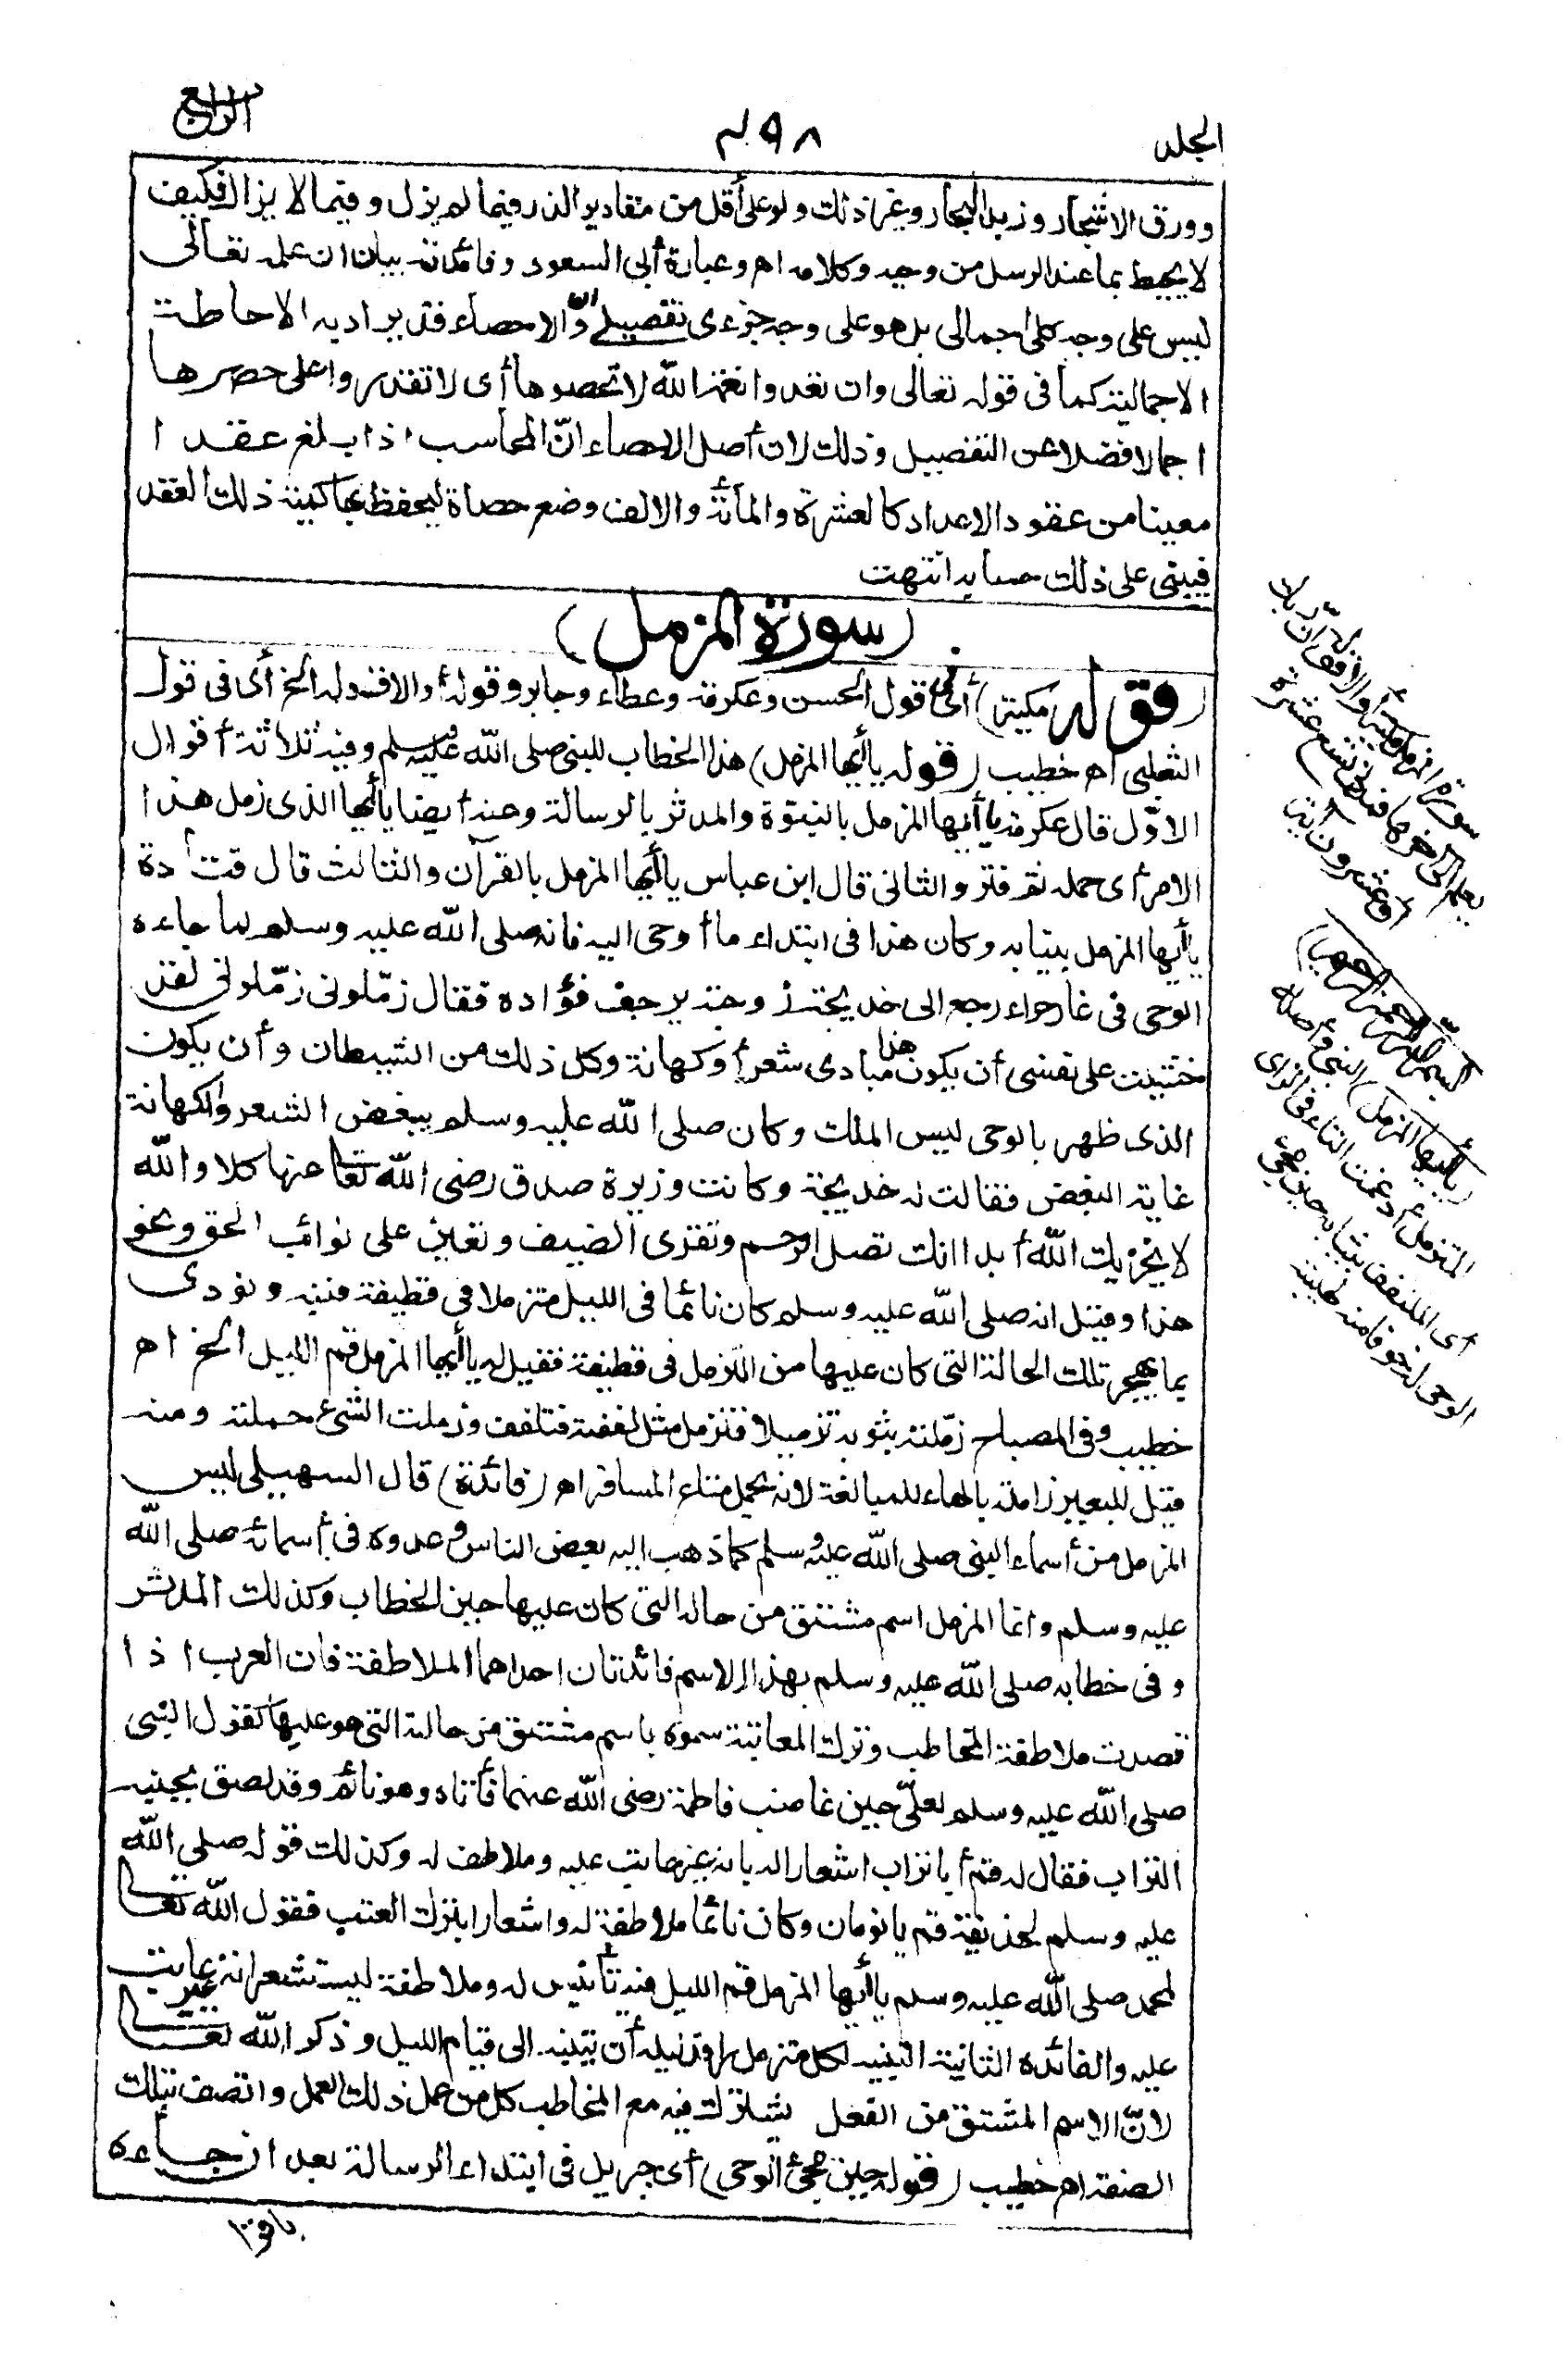 الجلد
٤٩٨
الرابع
وورق الاشجار وزبد البحار وغير ذلك ولو على أقل من مقادير الذر فيما لم يزل وفيما لا يزال فكيف
لا يحيط بما عند الرسل من وحيه وكلامه اه وعبارة أبى السعود وفائدته بيان ان علمه تعالى
ليس على وجه كلى اجمالى بل هو على وجه جزءى تفصيلى وان الاحصاء قد يراد به الاحاطة
الاجمالية كما فى قوله تعالى وان تعدوا نعمة الله لا تحصوها أى لا تقدروا على حصرها
اجمالا فضلا عن التفصيل وذلك لان أصل الاحصاء انّ المحاسب اذا بلغ عقدا
معينا من عقود الاعداد كالعشرة والمأئة والالف وضع حصاة ليحفظ بها كمية ذلك العقد
فيبنى على ذلك حسابه انتهت
(سورة المزمل)
(قوله مكية) أى فى قول الحسن وعكرمة وعطاء وجابر وقوله أو الا قوله الخ أى فى قول
الثعلبى اه خطيب (قوله يا أيها المزمل) هذا الخطاب للنبى صلى الله عليه وسلم وفيه ثلاثة أقوال
الاوّل قال عكرمة يا أيها المزمل بالنبوّة والمدثر بالرسالة وعنه أيضا يا أيها الذى زمل هذا
الامر أى حمله ثم فتر والثانى قال ابن عباس يا أيها المزمل بالقرآن والثالث قال قتادة
يا أيها المزمل بثيابه وكان هذا فى ابتداء ما أوحى اليه فانه صلى الله عليه وسلم لما جاءه
الوحى فى غار حراء رجع الى خديجة زوجته يرجف فؤاده فقال زمّلونى زمّلونى لقد
خشيت على نفسى أن يكون هذا مبادى شعر أو كهانة وكل ذلك من الشيطان وأن يكون
الذى ظهر بالوحى ليس الملك وكان صلى الله عليه وسلم يبغض الشعر والكهانة
غاية البغض فقالت له خديجة وكانت وزيرة صدق رضى الله تعا عنها كلا والله
لا يخزيك الله أبدا انك تصل الرحم وتقرى الضيف وتعين على نوائب الحق ونحو
هذا وقيل انه صلى الله عليه وسلم كان نائما فى الليل متزملا فى قطيفة فنبه ونودى
بما يهجر تلك الحالة التى كان عليها من التزمل فى قطيفة فقيل له يا أيها المزمل قم الليل الخ اه
خطيب وفى المصباح زمّلته بثوبه تزميلا فتزمل مثل لففته فتلفف وزملت الشئ حملته ومنه
قيل للبعير زاملة بالهاء للمبالغة لانه يحمل متاع المسافر اه (فائدة) قال السهيلى ليس
المزمل من أسماء النبى صلى الله عليه وسلم كما ذهب اليه بعض الناس وعدوه فى أسمائه صلى الله
عليه وسلم وانما المزمل اسم مشتق من حاله التى كان عليها حين الخطاب وكذلك المدثر
وفى خطابه صلى الله عليه وسلم بهذا الاسم فائدتان احداهما الملاطفة فان العرب اذا
قصدت ملاطفة المخاطب وترك المعاتبة سموه باسم مشتق من حالته التى هو عليها كقول النبى
صلى الله عليه وسلم لعلىّ حين غاضب فاطمة رضى الله عنهما فأتاه وهو نائم وقد لصق بجنبه
التراب فقال له قم أبا تراب اشعارا له بانه غير عاتب عليه وملاطف له وكذلك قوله صلى الله
عليه وسلم لحذيفة قم يا نومان وكان نائما ملاطفة له واشعارا بترك العتب فقول الله تعا
لمحمد صلى الله عليه وسلم يا أيها المزمل قم الليل فيه تأنيس له وملاطفة ليستشعر انه غير عاتب
عليه والفائدة الثانية التنبيه لكل متزمل راقد ليله أن يتنبه الى قيام الليل وذكر الله تعا
لانّ الاسم المشتق من الفعل يشترك فيه مع المخاطب كل من عمل ذلك العمل واتصف بتلك
الصفة اه خطيب (قوله حين مجئ الوحى) أى جبريل فى ابتداء الرسالة بعد ان جاءه
سورة المزمل مكية أو الا قوله ان ربك
يعلم الى آخرها فمدنى تسع عشرة
أو عشرون آية
(بسم الله الرحمن الرحيم)
(يا أيها المزمل) النبى وأصله
المتزمل أدغمت التاء فى الزاى
أى المتلفف بثيابه حين مجئ
الوحى له خوفا منه لهيبته